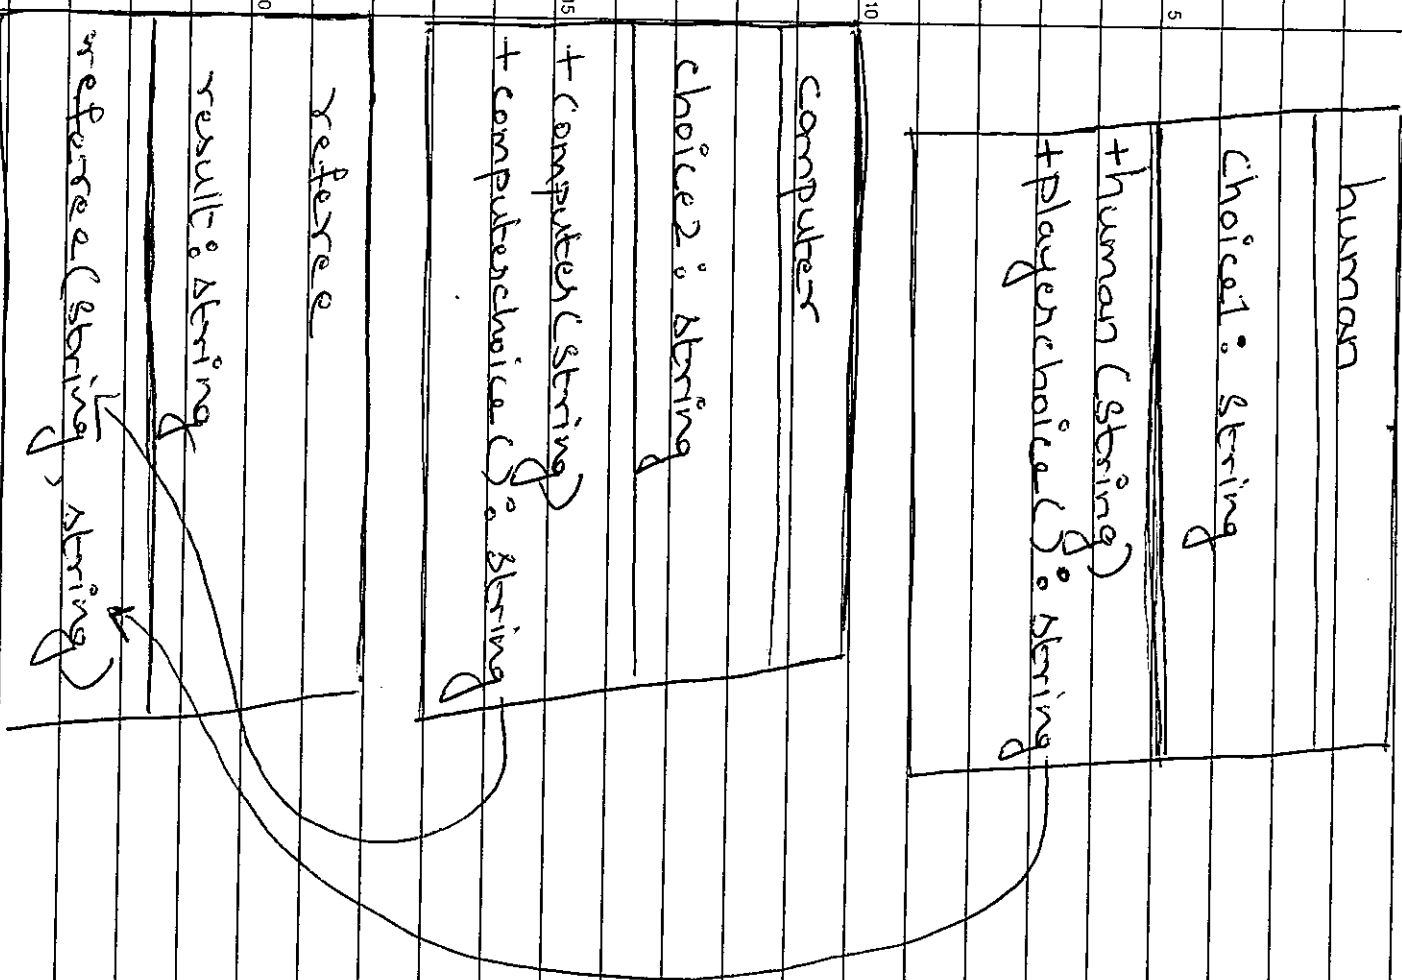 5
human
Choice1: string
+human (string)
+playerchoice(): string
10
computer
choice2: string
+computer(string)
+computerchoice(): string
15
referee
result: string
referee(string, string)